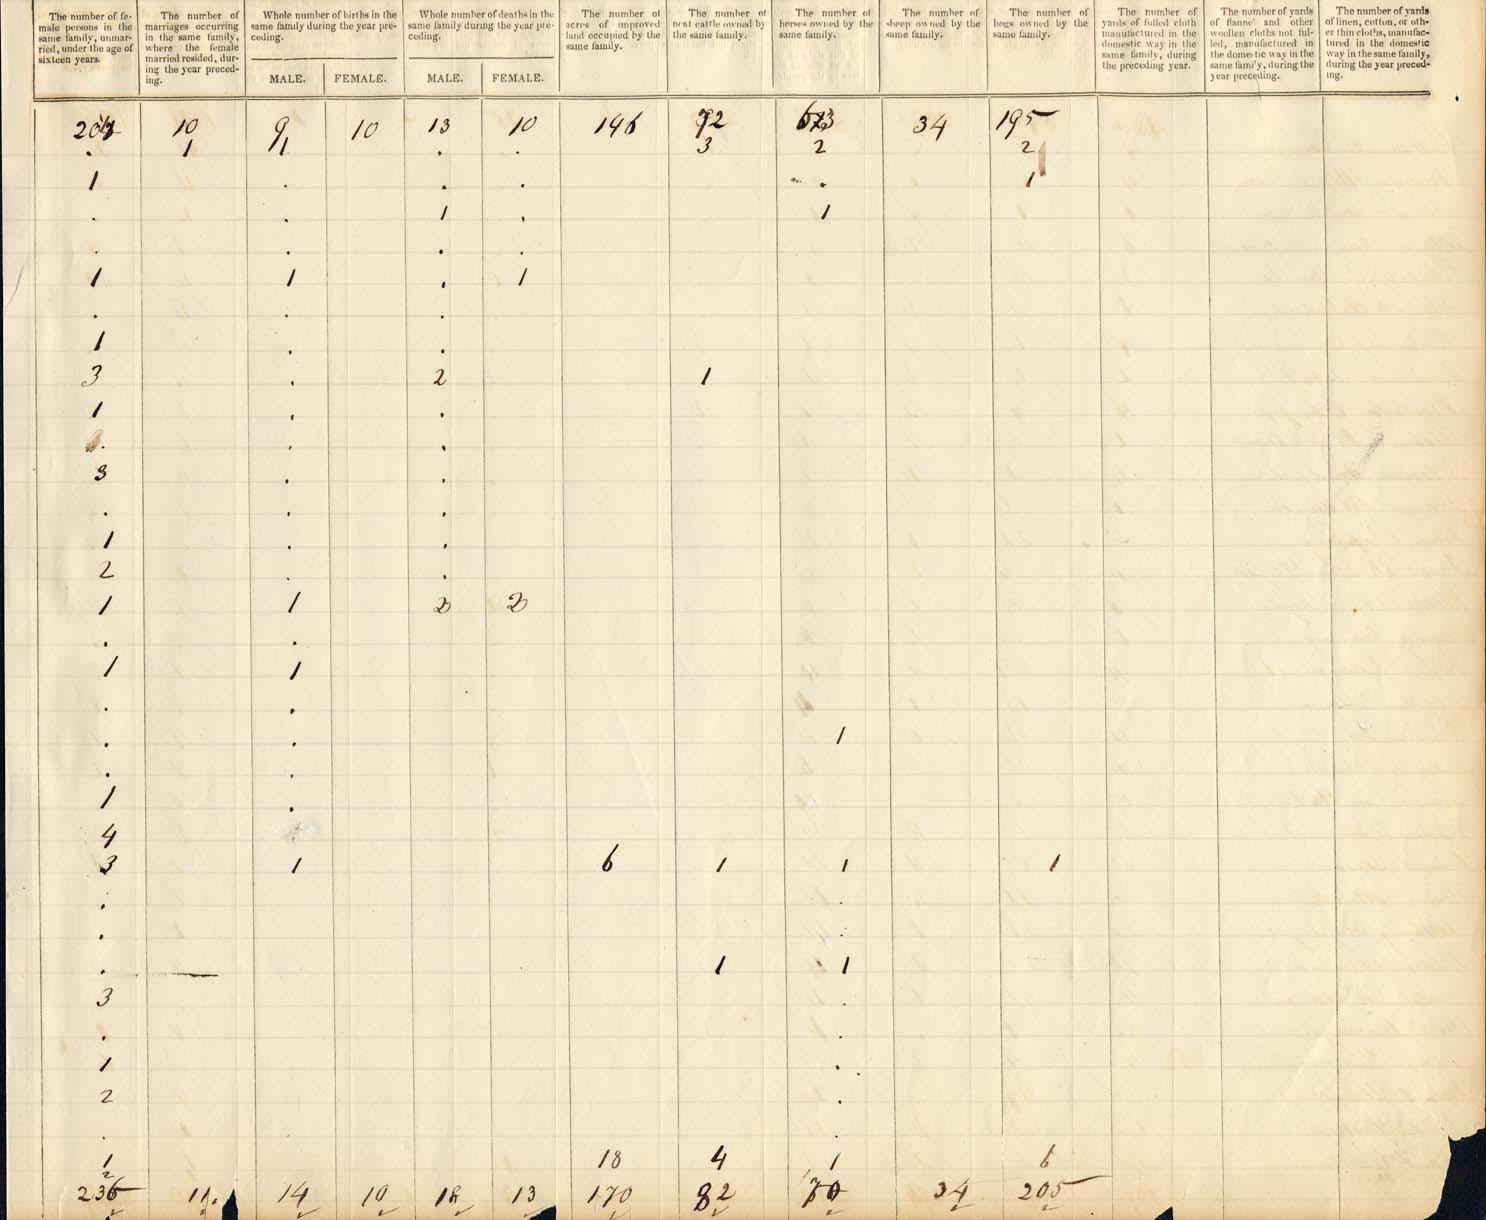 The number of fe-
male persons in the
same family, unmar-
ried, under the age of
sixteen years.
The number of
marriages occurring
in the same family,
where the female
married resided, dur-
ing the year preced-
ing.
Whole number of births in the
same family during the year pre-
ceding.
MALE. FEMALE.
Whole number of deaths in the
same family during the year pre-
ceding.
MALE. FEMALE.
The number of
acres of improved
land occupied by the
same family.
The number of
neat cattle owned by
the same family.
The number of
horses owned by the
same family.
The number of
sheep owned by the
same family.
The number of
hogs owned by the
same family.
The number of
yards of fulled cloth
manufactured in the
domestic way in the
same family, during
the preceding year.
The number of yards
of flannel and other
woollen cloths not ful-
led, manufactured in
the domestic way in the
same family, during the
year preceding.
The number of yards
of linen, cotton, or oth-
er thin cloths, manufac-
tured in the domestic
way in the same family,
during the year preced-
ing.
10 9 10 13 10 146 34 195
. 1 1 . . 3 2 2
1 . . . . 1
. . 1 . 1
. . . .
1 1 . 1
. . .
1 . .
3 . 2 1
1 . .
. . .
3 . .
. . .
1 . .
2 . .
1 1 2 2
. .
1 1
. .
. . 1
. .
1 .
4
3 1 6 1 1 1
. .
. .
. 1 1
3 .
. .
1 .
2 .
. .
1 18 4 1 6
236 11. 14 10 18 13 170 82 70 34 205